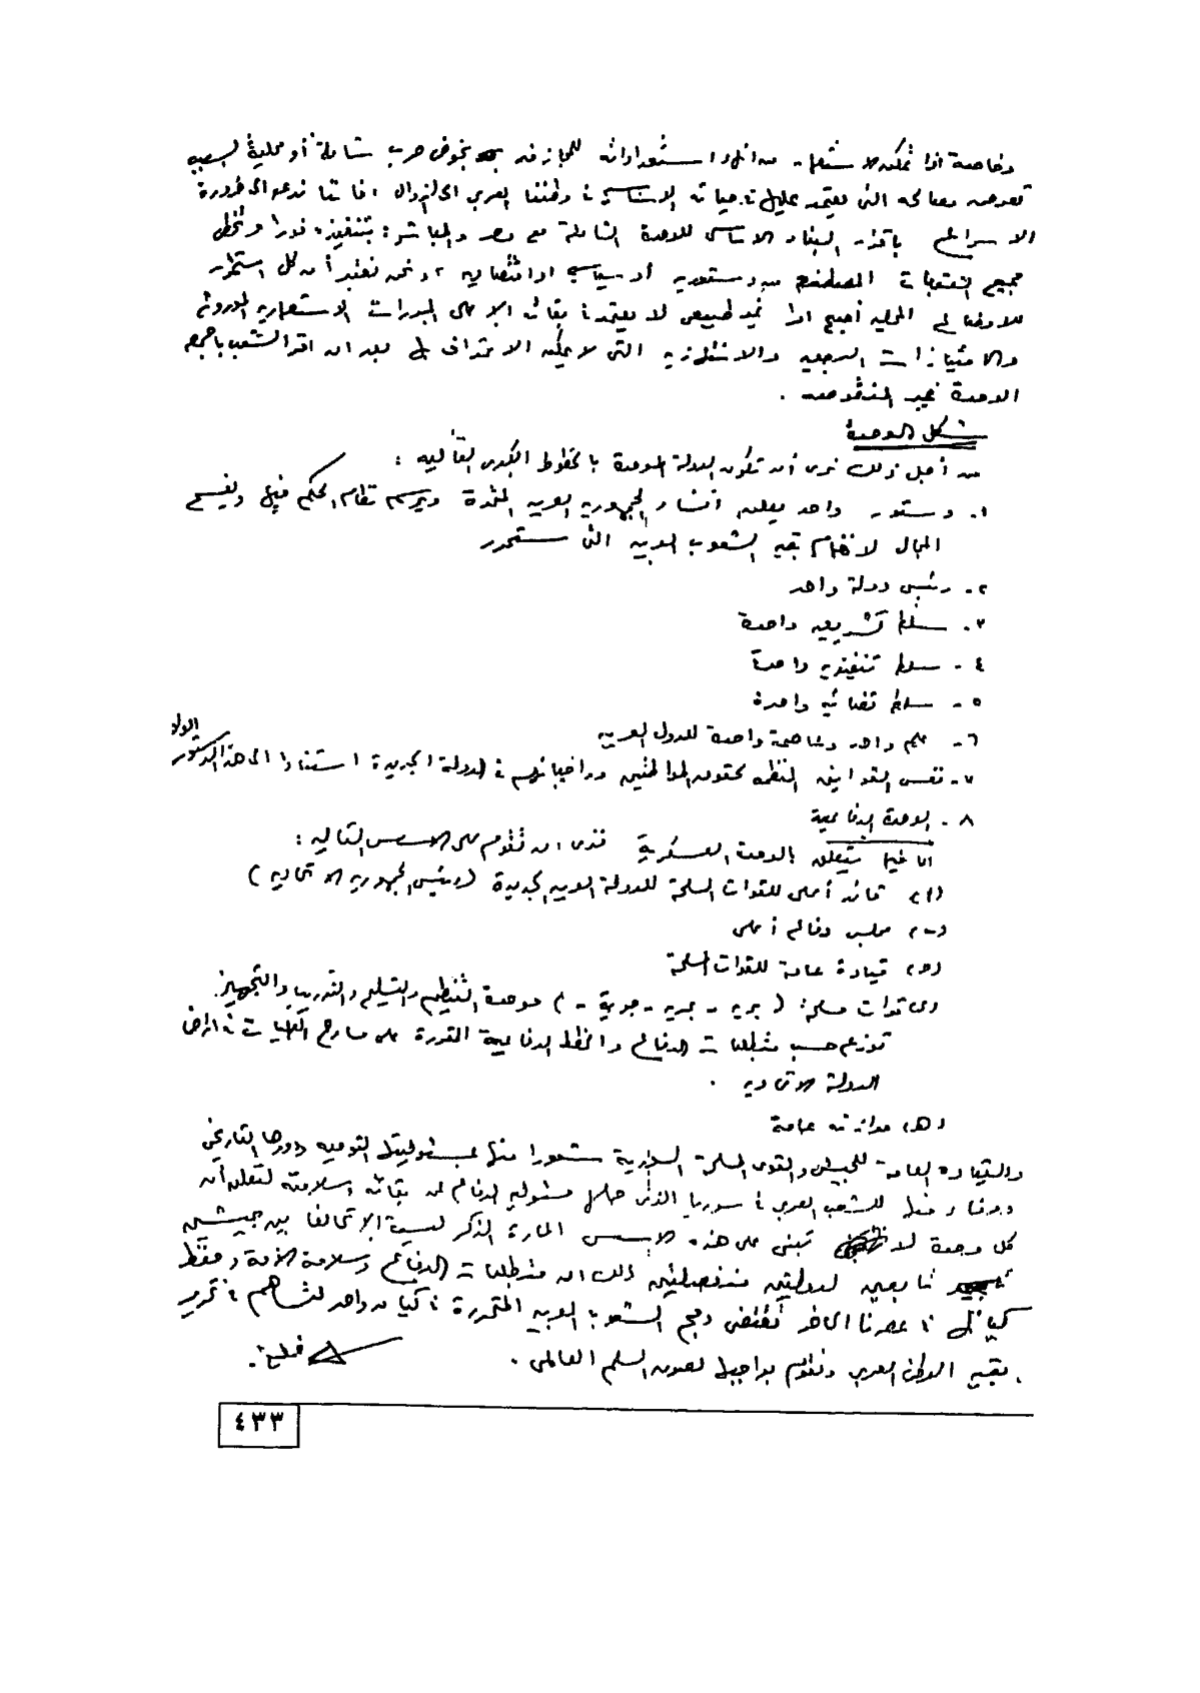 وخاصة اذا تمكن الاستعمار من انهاء استعداداته للمجازفة بخوض حرب شاملة أو محلية بسبب
تعرض مصالحه التي يعتمد عليها في حياته الاساسية في وطننا العربي الى الزوال اننا ندعو الى ضرورة
الاسراع باقرار البناء الاساسي للوحدة الشاملة مع مصر والمباشرة بتنفيذه فورا وتخطي
جميع العقبات المصطنعة من دستورية أو سياسية او اقتصادية ، ونحن نعتبر أن كل استمرار
للاوضاع الحالية أصبح امرا غير طبيعي لا يعتمد في بقائه إلا على المبررات الاستعمارية الموروثة
والامتيازات الرجعية والانتهازية التي لا يمكن الاعتراف بها بعد ان اقر الشعب باجمعه
الوحدة غير المنقوصة .
شكل الوحدة
من أجل ذلك نرى أن تكون الدولة الموحدة بالخطوط الكبرى التالية :
١. دستور واحد يعلن انشاء الجمهورية العربية المتحدة ويرسم نظام الحكم فيها ويفسح
المجال لانضمام بقية الشعوب العربية التي ستتحرر
٢. رئيس دولة واحد
٣. سلطة تشريعية واحدة
٤ - سلطة تنفيذية واحدة
٥ - سلطة قضائية واحدة
٦ - علم واحد وعاصمة واحدة للدول العربية
٧ - نفس القوانين المنظمة لحقوق المواطنين وواجباتهم في الدولة الجديدة استنادا الى هذا الدستور
الواحد
٨ - الوحدة الدفاعية
اما فيما يتعلق بالوحدة العسكرية فنرى ان تقوم على الاسس التالية :
(ا) قائد أعلى للقوات المسلحة للدولة العربية الجديدة (رئيس الجمهورية الاتحادية)
(ب) مجلس دفاع أعلى
(ج) قيادة عامة للقوات المسلحة
(د) قوات مسلحة ( برية - بحرية - جوية - ) موحدة التنظيم والتسليح والتدريب والتجهيز
توزع حسب متطلبات الدفاع والخطط الدفاعية المقررة على مسارح العمليات في اراضي
الدولة الاتحادية .
(هـ) موازنة عامة
والقيادة العامة للجيش والقوى المسلحة السورية شعورا منها بمسئوليتها القومية ودورها التاريخي
ووفاء منها للشعب العربي في سوريا الذي حملها مسئولية الدفاع عن بقائه وسلامته لتعلن أن
كل وحدة لا تبنى على هذه الاسس المارة الذكر ليست إلا تحالفا بين جيشين
تابعين لدولتين منفصلتين ذلك ان متطلبات الدفاع وسلامة الأمة وحفظ
كيانها في عصرنا الحاضر تقتضي دمج الشعوب العربية المتحررة في كيان واحد لتساهم في تحرير
بقية الوطن العربي وتقوم بواجبها لصون السلم العالمي .
٤٣٣